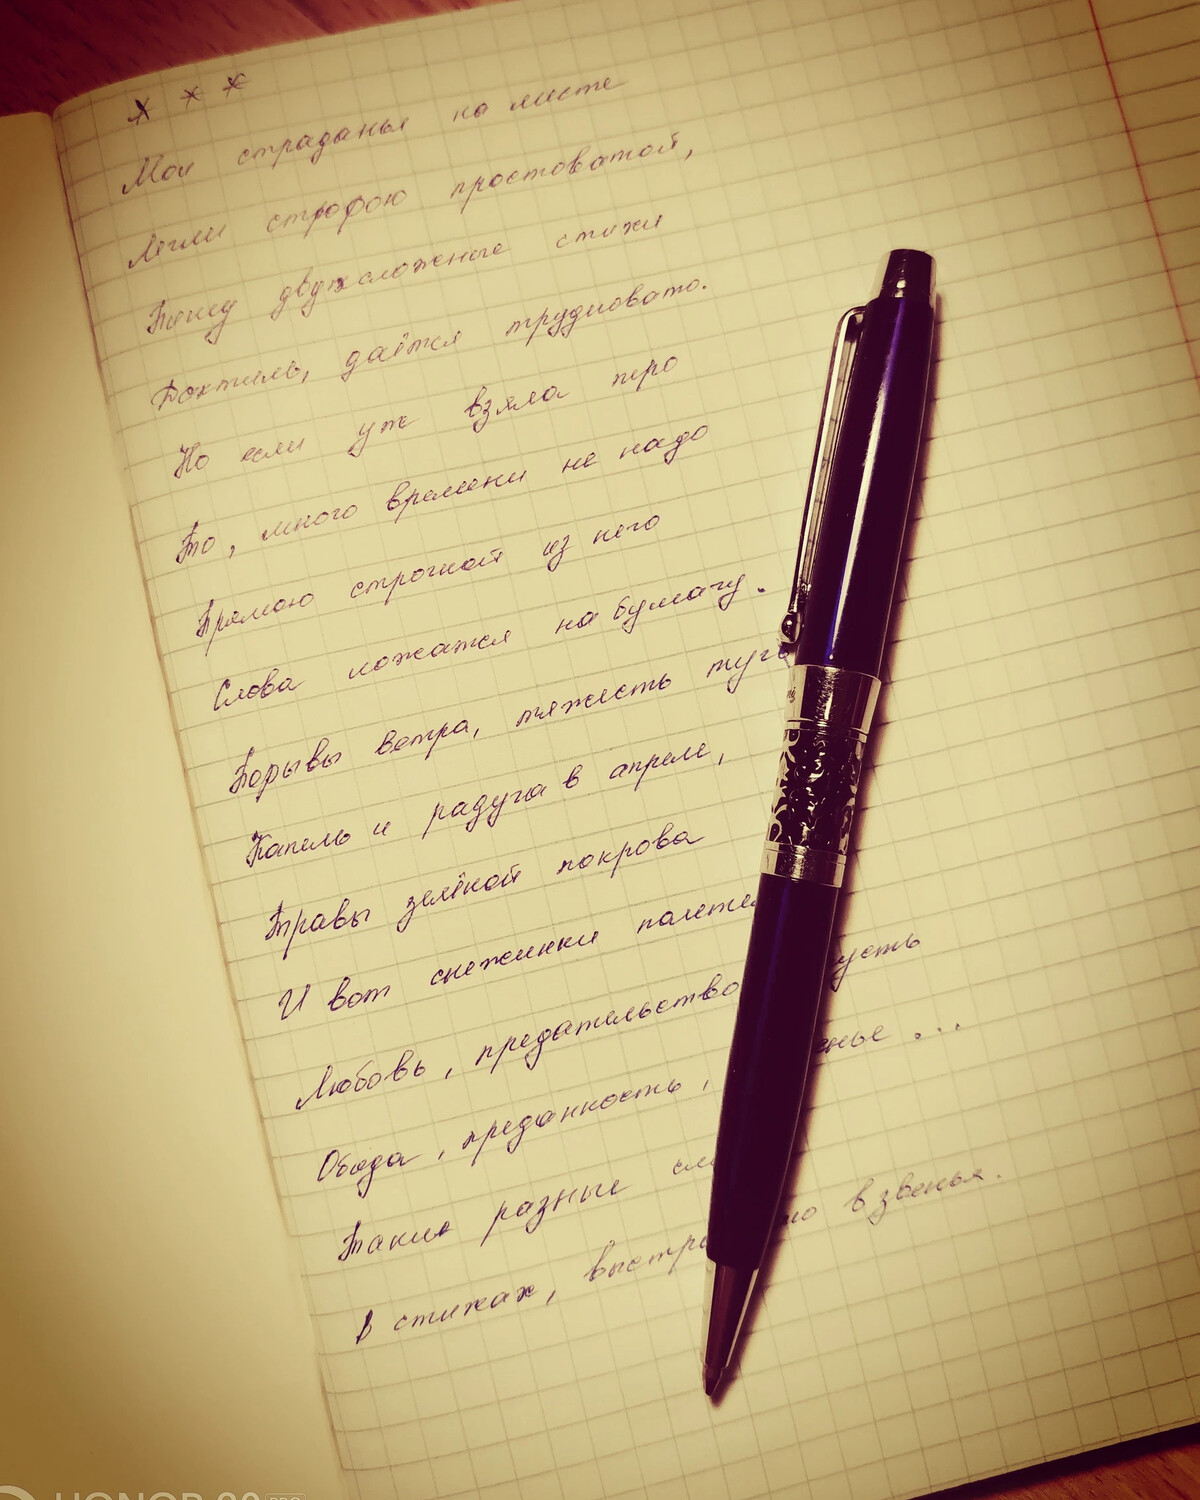 * * *
Мои страданья на листе
Легли строфою простоватой,
Пишу двухсложные стихи
Дактиль, даётся трудновато.
Но если уж взяла перо
То, много времени не надо
Прямою строчкой из него
Слова ложатся на бумагу.
Порывы ветра, тяжесть туч
Капель и радуга в апреле,
Травы зелёной покрова
И вот снежинки полетел
Любовь, предательство усть
Обида, преданность, енье ...
Такие разные сл
В стихах, выстр ю в звенья.
HONOR 90 PRO